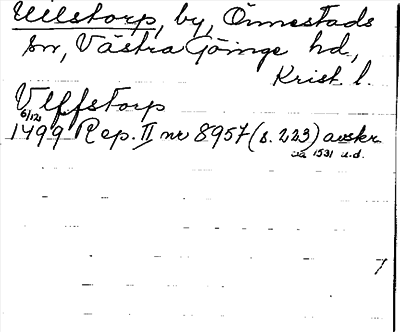 Uilstorp, by, Önnestads
sn, Västra Göinge hd.,
Krist. l.
Vlffstorp
6/12
1499 Rep. II nr 8957 (s. 223) avskr
ca 1531 u.d.
7